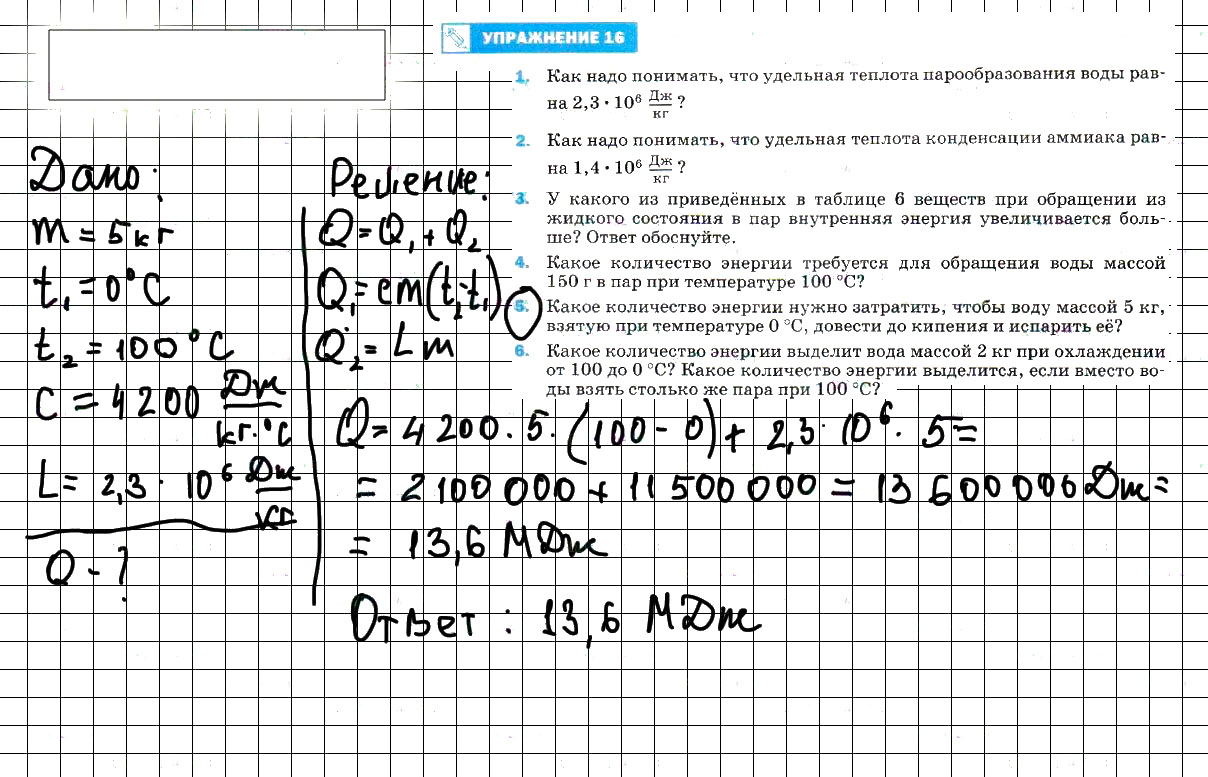 УПРАЖНЕНИЕ 16
1. Как надо понимать, что удельная теплота парообразования воды рав-
на 2,3 · 10⁶ Дж/кг ?
2. Как надо понимать, что удельная теплота конденсации аммиака рав-
на 1,4 · 10⁶ Дж/кг ?
3. У какого из приведённых в таблице 6 веществ при обращении из
жидкого состояния в пар внутренняя энергия увеличивается боль-
ше? Ответ обоснуйте.
4. Какое количество энергии требуется для обращения воды массой
150 г в пар при температуре 100 °С?
5. Какое количество энергии нужно затратить, чтобы воду массой 5 кг,
взятую при температуре 0 °С, довести до кипения и испарить её?
6. Какое количество энергии выделит вода массой 2 кг при охлаждении
от 100 до 0 °С? Какое количество энергии выделится, если вместо во-
ды взять столько же пара при 100 °С?
Дано:
m = 5 кг
t₁ = 0°C
t₂ = 100°C
c = 4200 Дж/кг·°C
L = 2,3 · 10⁶ Дж/кг
Q - ?
Решение:
Q = Q₁ + Q₂
Q₁ = cm(t₂-t₁)
Q₂ = Lm
Q = 4200 · 5 · (100 - 0) + 2,3 · 10⁶ · 5 =
= 2100 000 + 11 500 000 = 13 600 000 Дж =
= 13,6 МДж
Ответ : 13,6 МДж